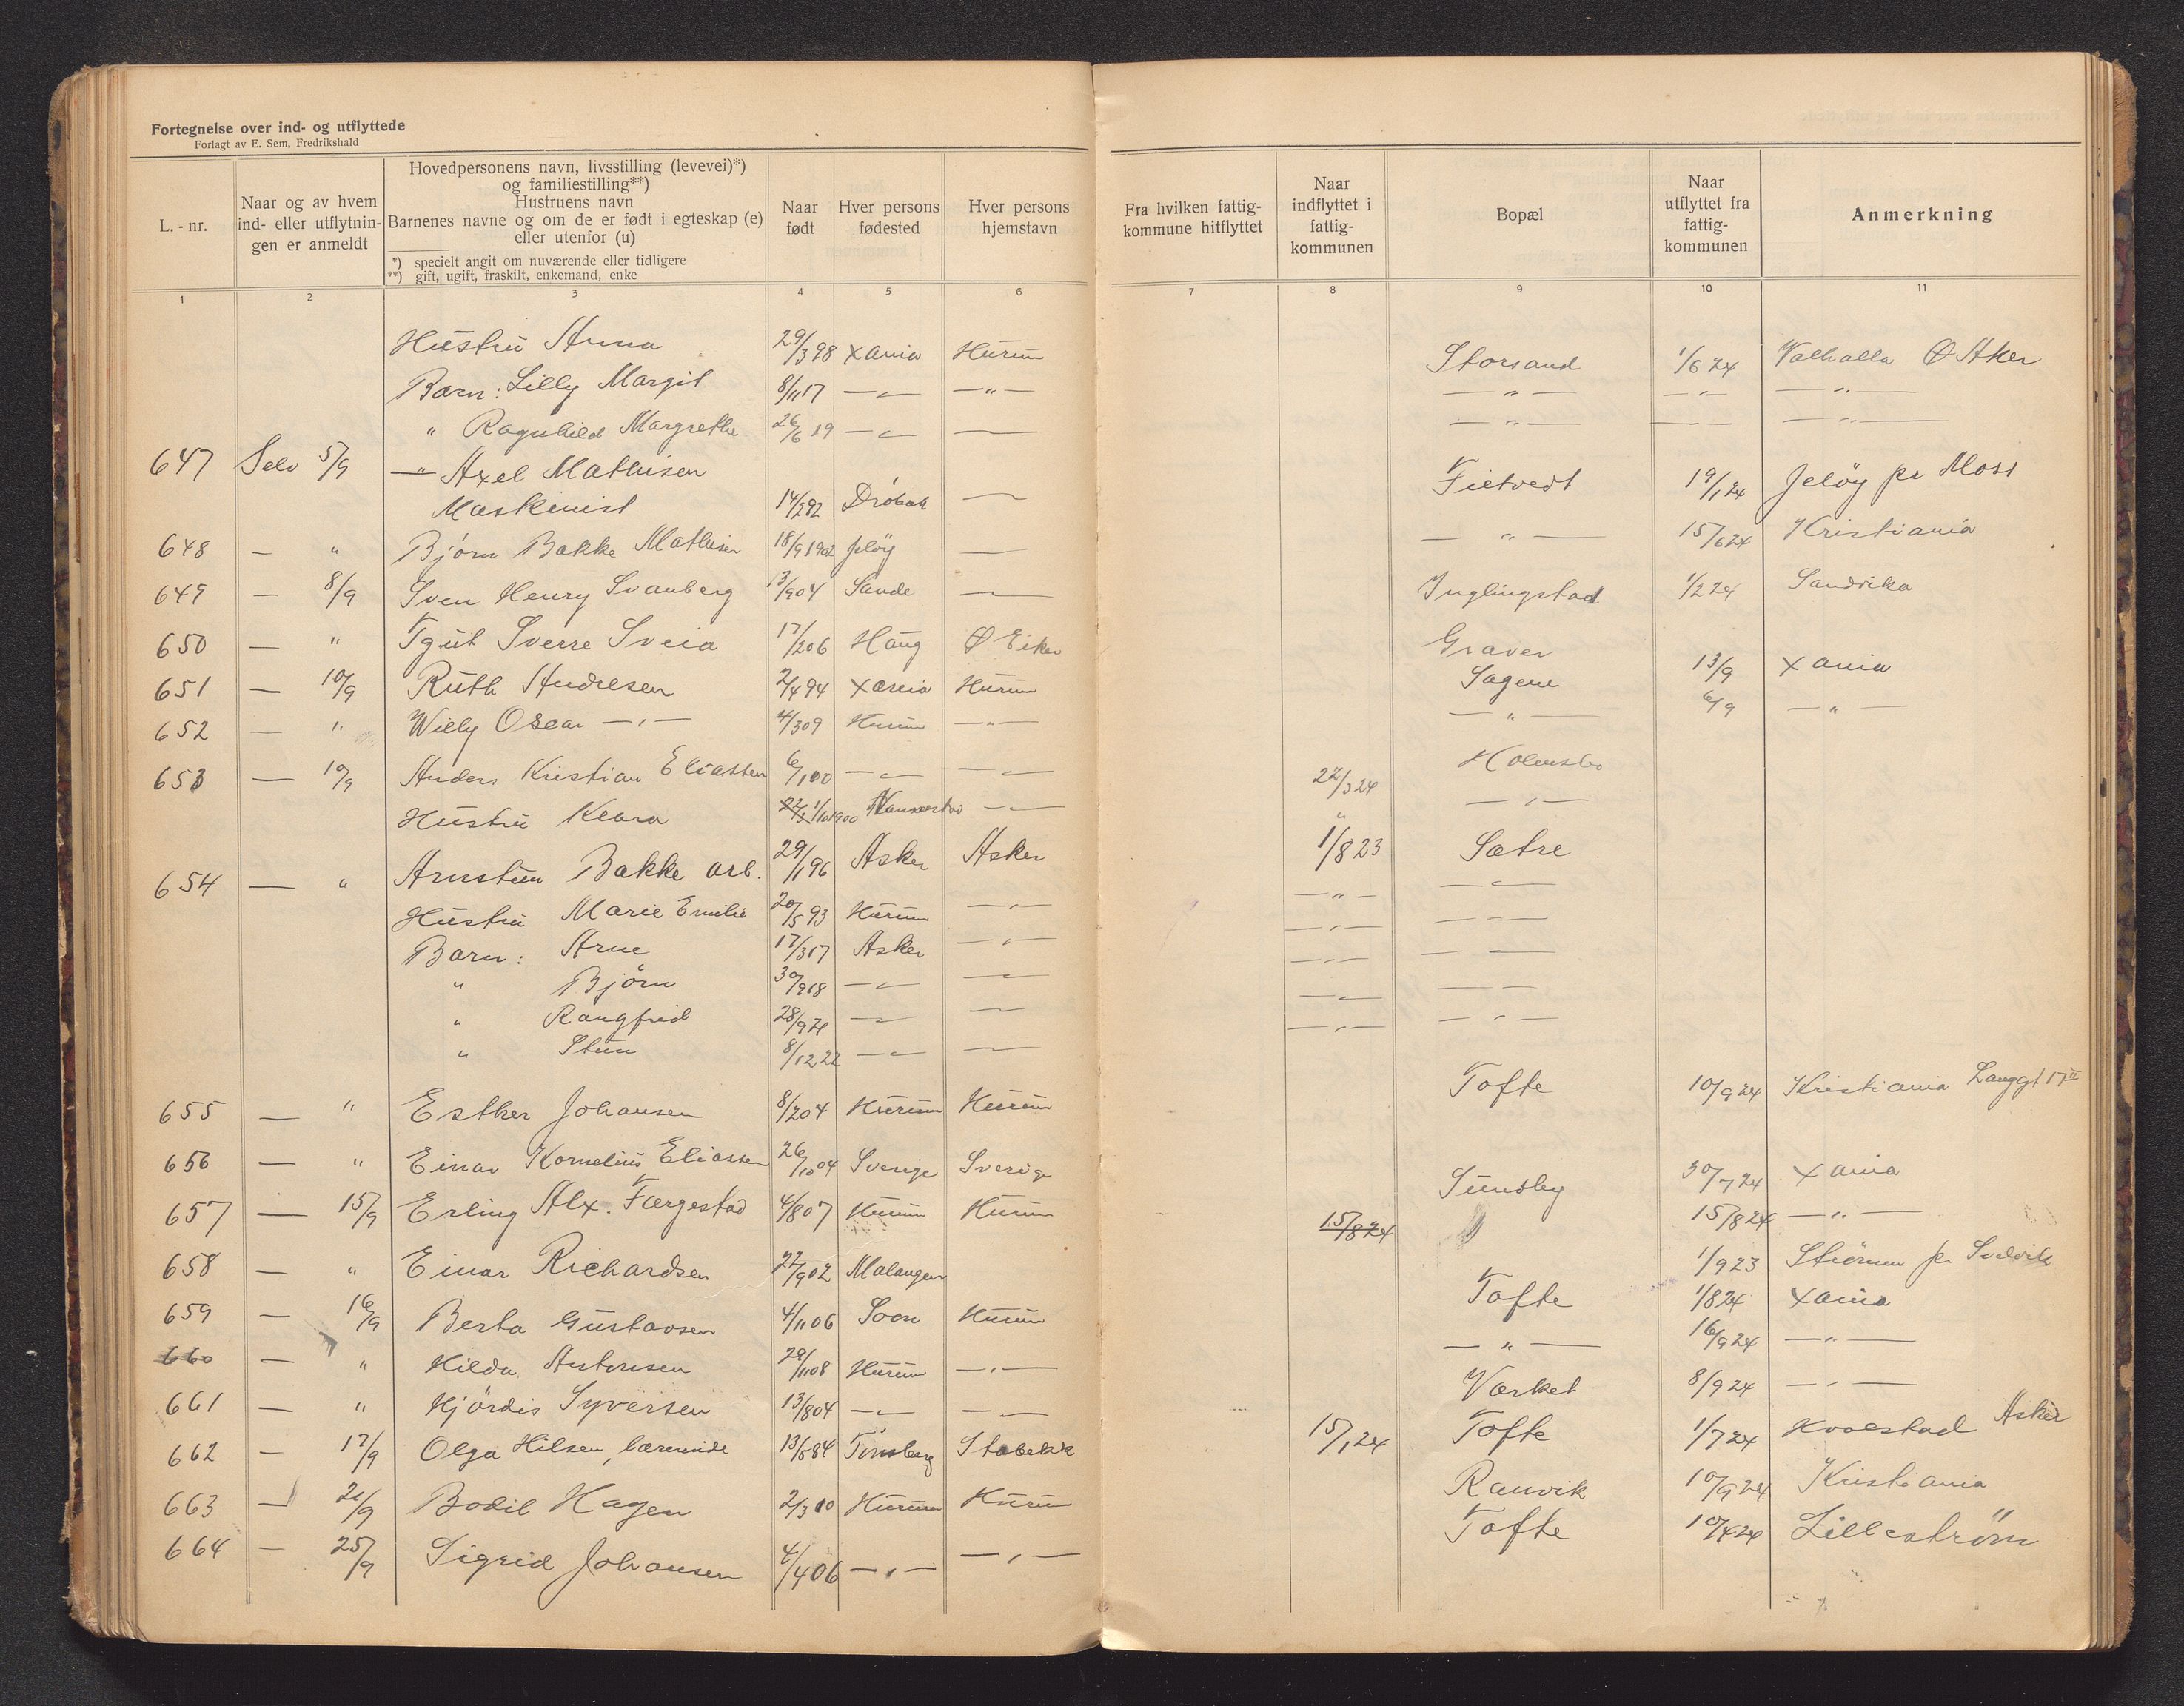 Fortegnelse over ind- og utflyttede
Forlagt av E. Sem, Fredrikshald
L.-nr.
Naar og av hvem ind- eller utflytnin-gen er anmeldt
Hovedpersonens navn, livsstilling (levevei)*)
og familiestilling**)
Hustruens navn
Barnenes navne og om de er født i egteskap (e)
eller utenfor (u)
*) specielt angit om nuværende eller tidligere
**) gift, ugift, fraskilt, enkemand, enke
Naar født
Hver persons fødested
Hver persons hjemstavn
Fra hvilken fattig-kommune hitflyttet
Naar indflyttet i fattig-kommunen
Bopæl
Naar utflyttet fra fattig-kommunen
Anmerkning
1 2 3 4 5 6 7 8 9 10 11
Hustru Anna 29/3 98 Xania Hurum Storsand 1/6 24 Valhalla Ø Aker
Barn: Lilly Margit 8/11 17 — " — — " — — " — — " — — " —
" Ragnhild Margrethe 26/6 19 — " — —— — " — — " — — " —
647 Selv 5/9 — " Axel Mathisen Fietvedt 19/1 24 Jeløy pr Moss
Maskinist 14/2 92 Drøbak ——
648 — " Bjørn Bakke Mathisen 18/9 1902 Jeløy —— — " — 15/6 24 Kristiania
649 — 8/9 Sven Henry Svanberg 13/9 04 Sande —— Inglingstad 1/2 24 Sandvika
650 — " Sverre Sveia 17/2 06 Haug Ø Eiker Graver 13/9 Xania
651 — 10/9 Ruth Andresen 2/4 94 Xania Hurum Sagene 6/9 — " —
652 — " Willy Oscar — " — 4/3 09 Hurum — " — — " —
653 — 10/9 Anders Kristian Eliassen 6/1 00 — " — — " — 22/3 24 Holmsbo
Hustru Klara 1/10 1900 Nannestad — " — " — " —
654 — " Arnstein Bakke arb. 29/1 96 Asker Asker 1/8 23 Sætre
Hustru Marie Emilie 20/5 93 Hurum — " — — " — — " —
Barn: Arne 17/3 17 Asker — " — — " — — " —
" Bjørn 30/9 18 — " — — " — — " — — " —
" Rangfrid 28/9 20 — " — —— — " — — " —
" Stein 8/12 22 — " — —— — " — — " —
655 — " Esther Johansen 8/2 04 Hurum Hurum Tofte 10/9 24 Kristiania Langgt 17 II
656 — " Einar Kornelius Eliassen 26/10 04 Sverige Sverige Sundby 30/7 24 Xania
657 — 15/9 Erling Alx. Færgestad 4/8 07 Hurum Hurum 15/8 24 15/8 24 — " —
658 — " Einar Richardsen 22/9 02 Malangen 1/9 23 Strømm pr. Svelvik
659 — 16/9 Berta Gustavsen 4/11 06 Soon Hurum Tofte 1/8 24 Xania
660 — " Hilda Antonsen 29/11 08 Hurum — " — — " — 16/9 24 — " —
661 — " Hjørdis Syversen 13/8 04 — " — — — Værket 8/9 24 — " —
662 — 17/9 Olga Hilsen, lærerinde 13/5 84 Tønsberg Stabekk 15/1 24 Tofte 1/7 24 Hvalstad Asker
663 — 21/9 Bodil Hagen 2/3 10 Hurum Hurum Ranvik 10/9 24 Kristiania
664 — 25/9 Sigrid Johansen 4/4 06 — " — — " — Tofte 10/4 24 Lillestrøm